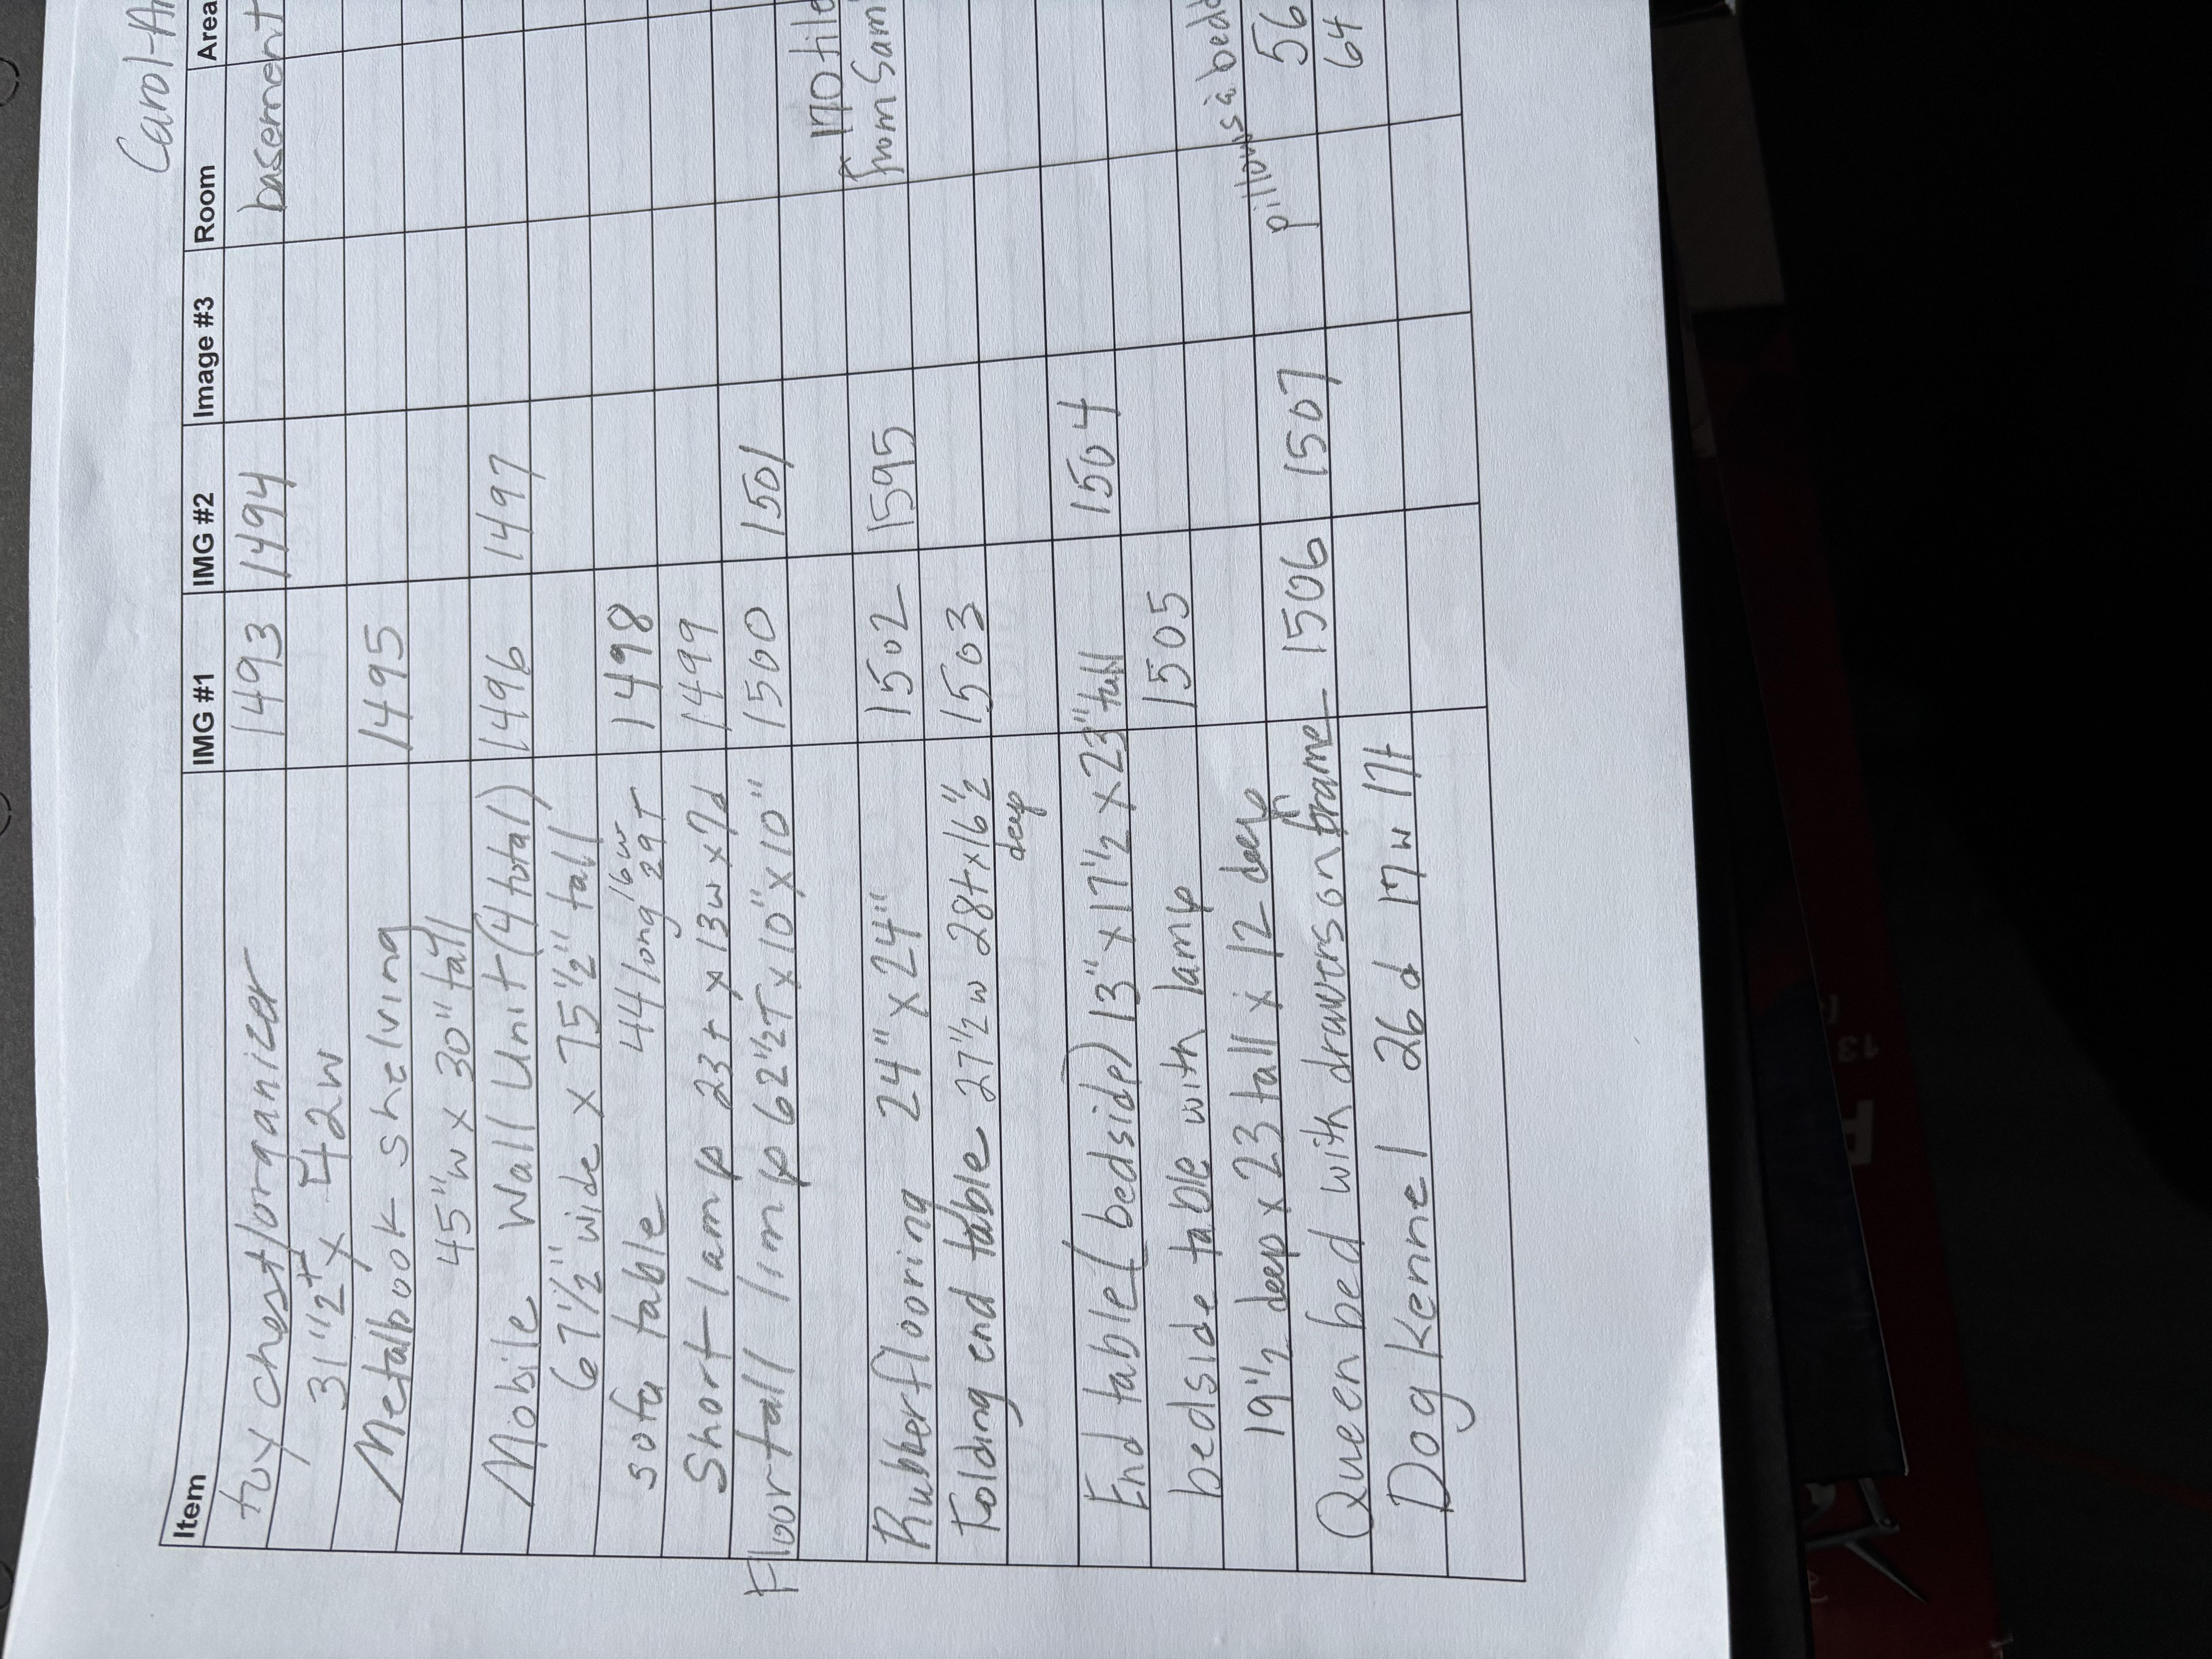 Carol-A
Item IMG #1 IMG #2 Image #3 Room Area
toy chest/organizer 1493 1494 basement
31 1/2 t x 42w
Metal book shelving 1495
45" w x 30" tall
Mobile Wall Unit (4 total) 1496 1497
67 1/2" wide x 75 1/2" tall
sofa table 44 long 16w 29T 1498
Short lamp 23t x 13w x 7d 1499
Floor tall lmp 62 1/2T x 10" x 10" 1500 1501
170 tile
Rubber flooring 24" x 24" 1502 1595 from Sam
Folding end table 27 1/2 w 28t x 16 1/2 1503
deep
End table (bedside) 13" x 17 1/2 x 23" tall 1504
bedside table with lamp 1505
19 1/2 deep x 23 tall x 12 deep pillows à bedd
Queen bed with drawers on frame 1506 1507 56
Dog Kennel 26d 17w 17t 64
13